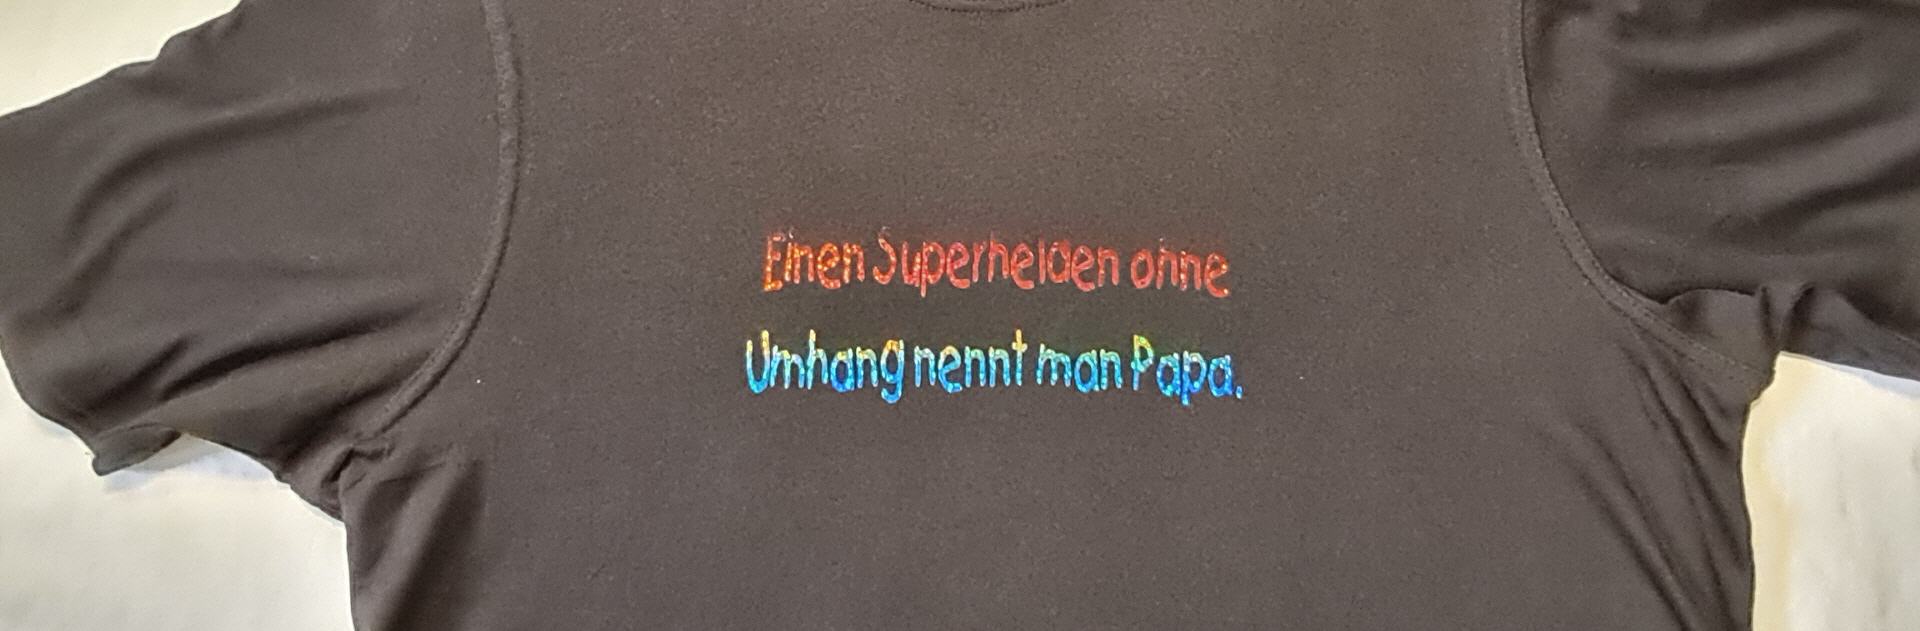 Einen Superhelden ohne
Umhang nennt man Papa.